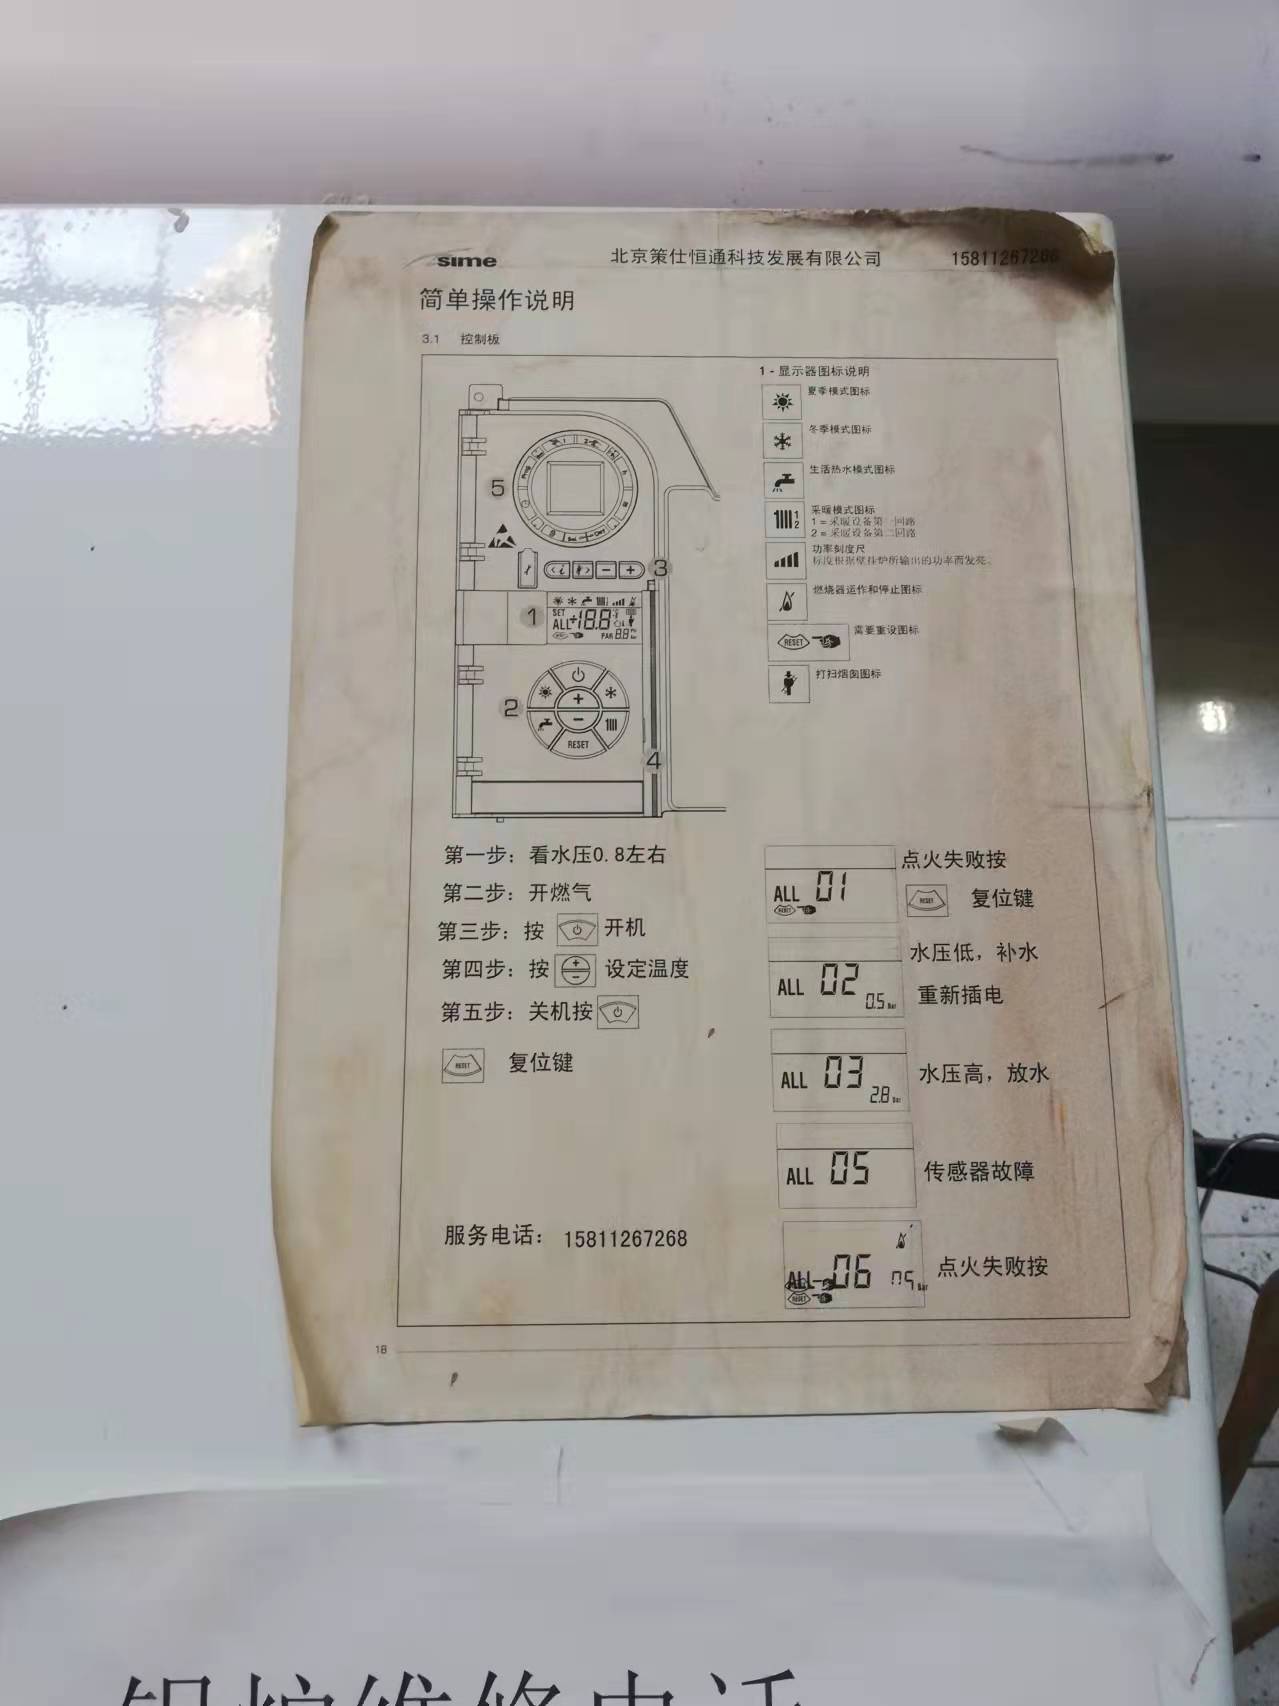 sime 北京策仕恒通科技发展有限公司 15811267268
简单操作说明
3.1 控制板
1 - 显示器图标说明
夏季模式图标
冬季模式图标
生活热水模式图标
采暖模式图标
1 = 采暖设备第一回路
2 = 采暖设备第二回路
功率刻度尺
标度根据壁挂炉所输出的功率而发亮。
燃烧器运作和停止图标
RESET 需要重设图标
打扫烟囱图标
5
3
1
SET
ALL
PAR 8.8
2
RESET
4
第一步：看水压0.8左右
第二步：开燃气
第三步：按 开机
第四步：按 + − 设定温度
第五步：关机按
RESET 复位键
服务电话： 15811267268
ALL 01 点火失败按
RESET RESET 复位键
ALL 02 0.5 Bar 水压低，补水
重新插电
ALL 03 2.8 Bar 水压高，放水
ALL 05 传感器故障
ALL 06 点火失败按
RESET
18
锅炉维修电话